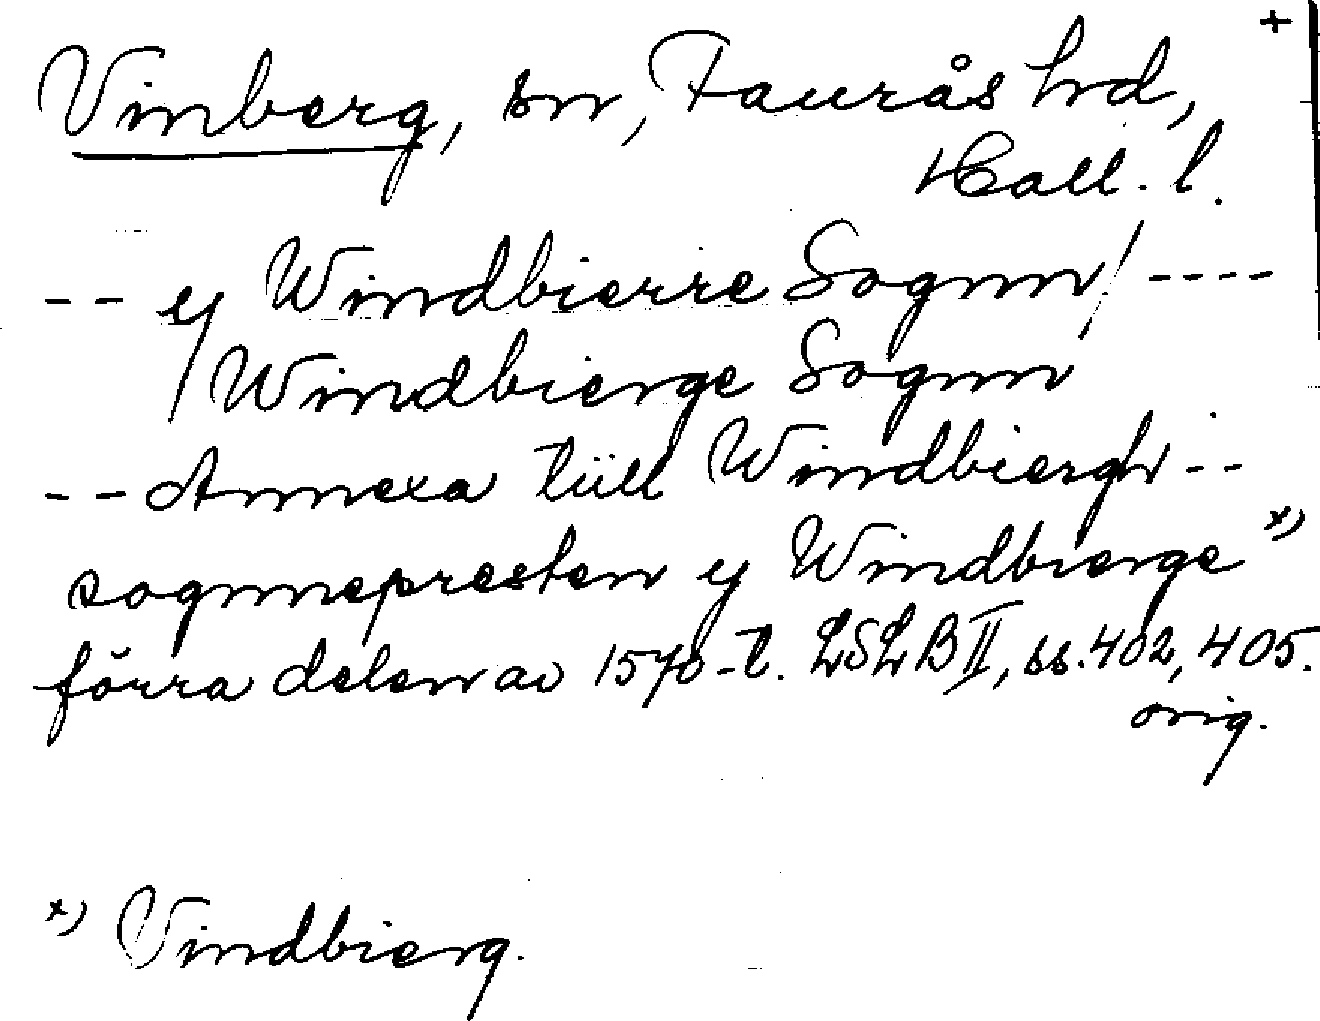 +
Vinberg, sn, Faurås hd,
Hall. l.
-- ej Windbierre Sognn/ ----
/Windbierge Sognn
-- Annexa tüll Windbiergh --
sognnepresten ej Windbierge x)
förra delen av 1570-t. LSLB II, ss. 402, 405.
orig.
x) Vindbierg.